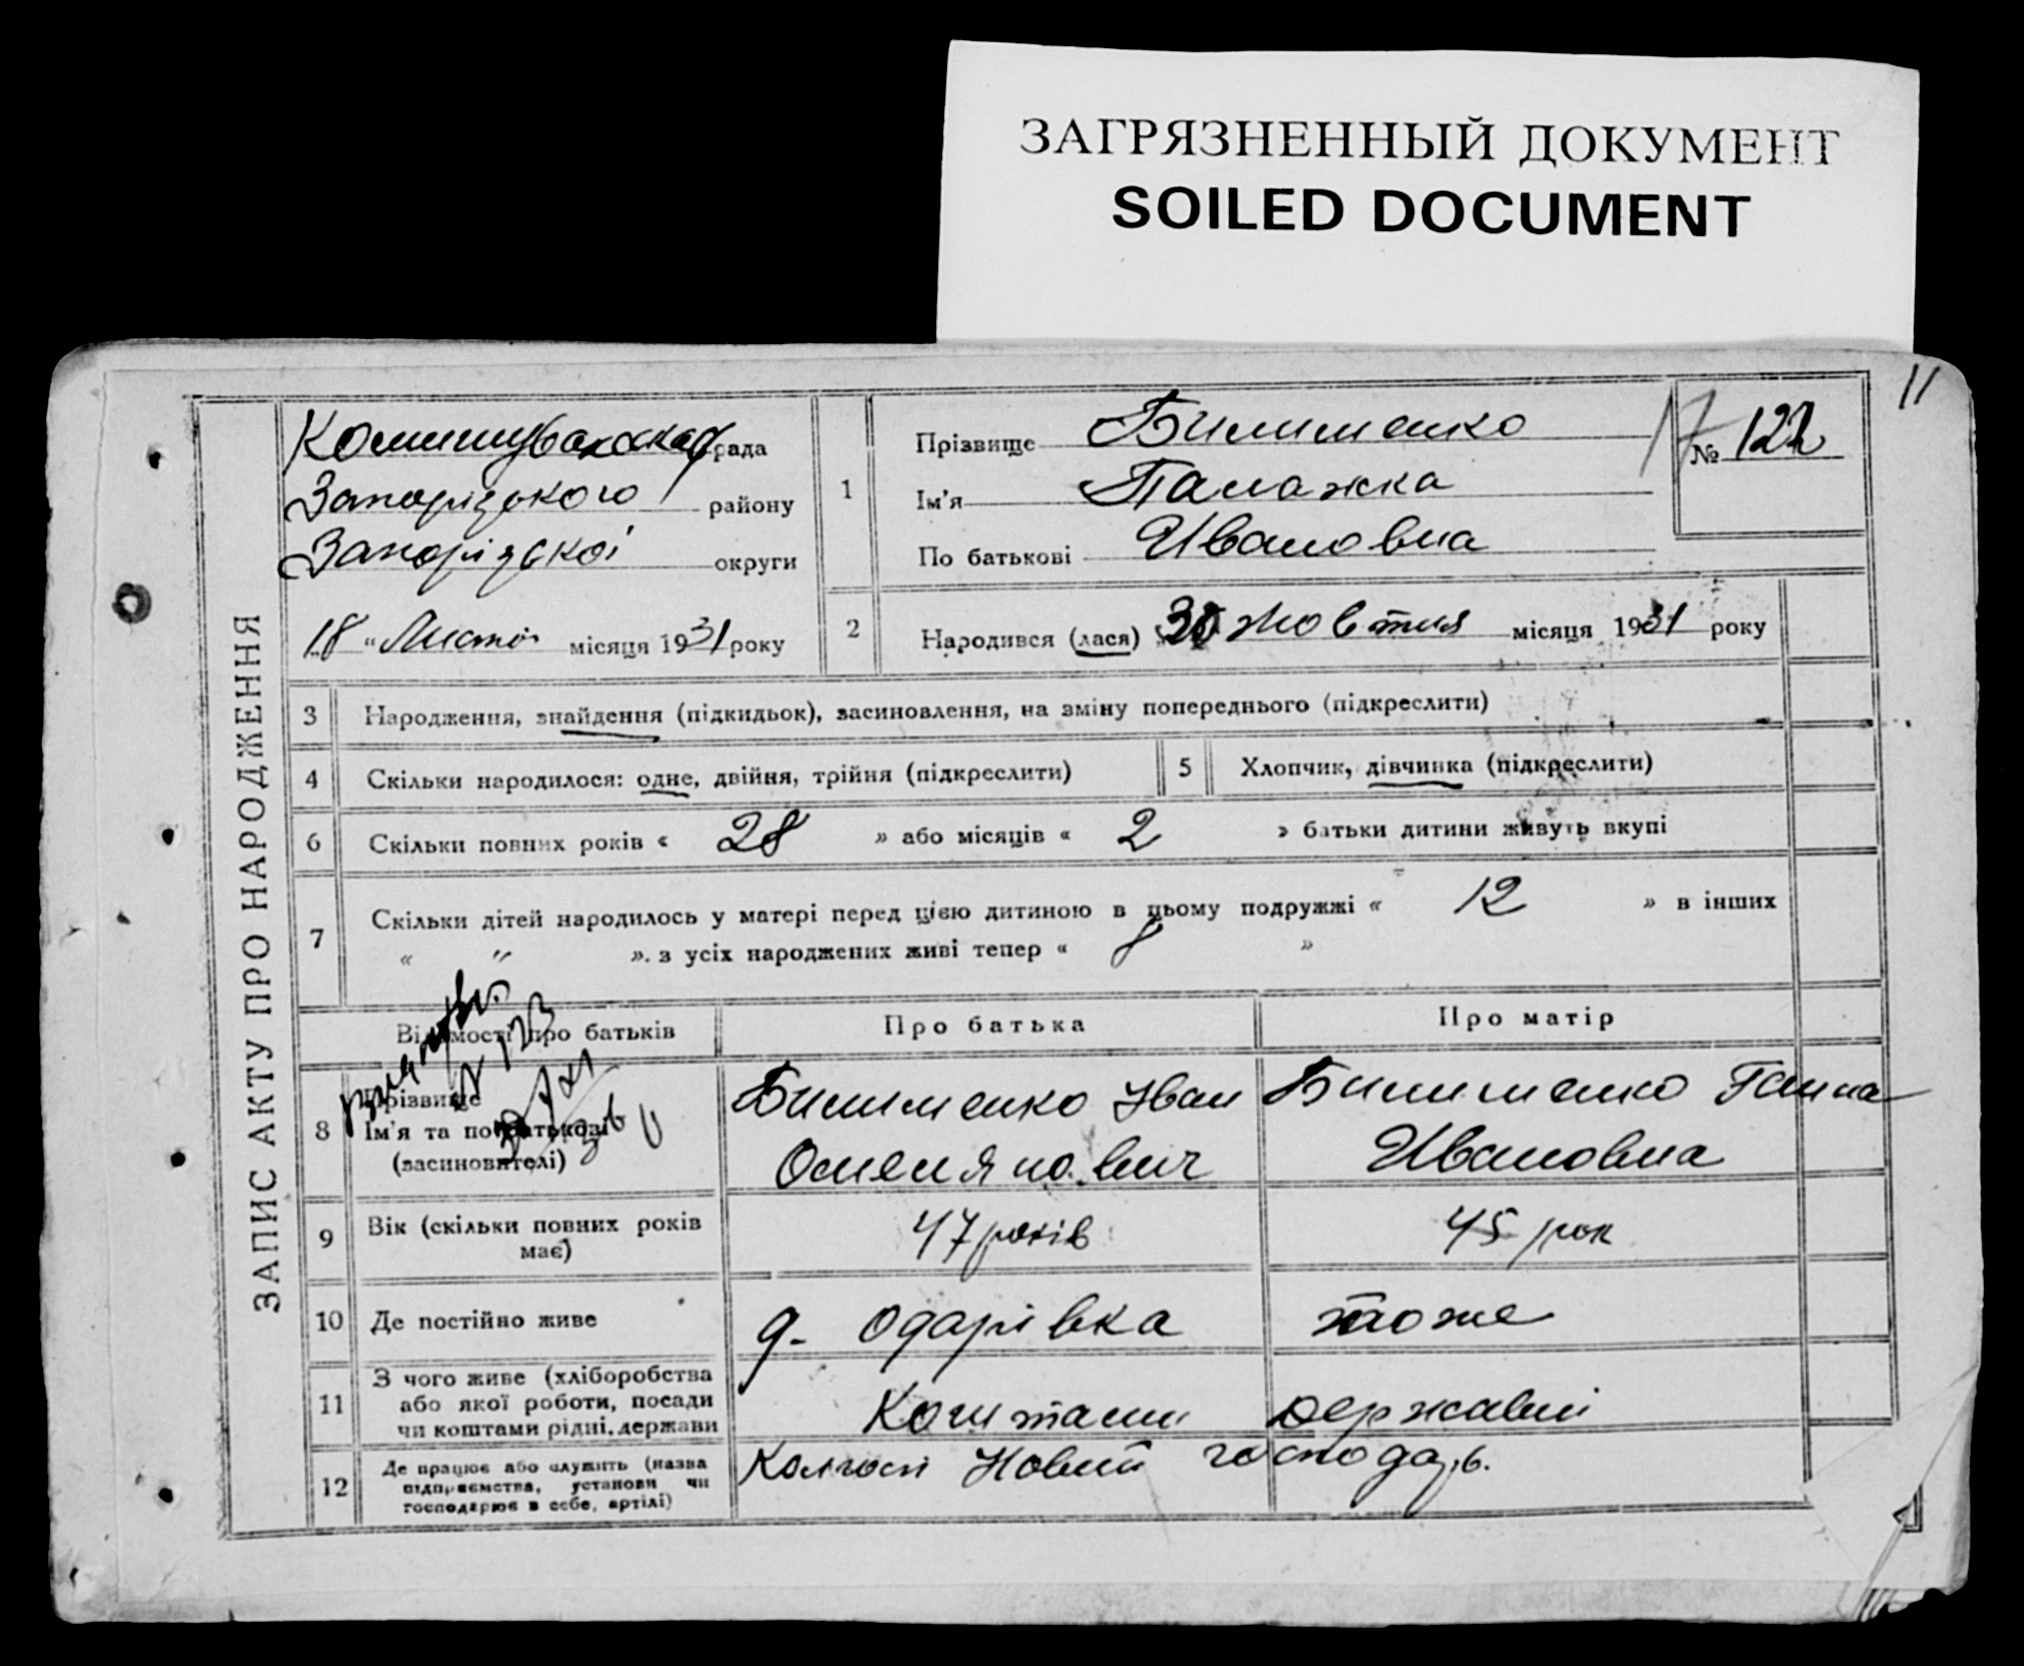 ЗАГРЯЗНЕННЫЙ ДОКУМЕНТ
SOILED DOCUMENT
11
ЗАПИС АКТУ ПРО НАРОДЖЕННЯ
Комишуваська рада
Запорізького району
Запорізскоі округи
18 " Листоп місяця 1931 року
1
Прізвище Билименко
Ім'я Паламажка
По батькові Ивановна
17
№ 122
2 Народився (лася) 30 жовтня місяця 1931 року
3 Народження, знайдення (підкидьок), засиновлення, на зміну попереднього (підкреслити)
4 Скільки народилося: одне, двійня, трійня (підкреслити)
5 Хлопчик, дівчинка (підкреслити)
6 Скільки повних років « 28 » або місяців « 2 » батьки дитини живуть вкупі
7 Скільки дітей народилось у матері перед цією дитиною в цьому подружжі « 12 » в інших
« " ». з усіх народжених живі тепер « 8 »
Відомості про батьків Про батька Про матір
8 Прізвище
Ім'я та по батькові
(засиновителі)
№ 123
Билименко Иван
Омелянович
Билименко Ганна
Ивановна
9 Вік (скільки повних років
має)
47 років
45 рок
10 Де постійно живе
д. Одарівка
тоже
11 З чого живе (хліборобства
або якої роботи, посади
чи коштами рідні, держави
Коштами державні
12 Де працює або служить (назва
підприємства, установи чи
господарює в себе, артілі)
Колгосп Новий господар.